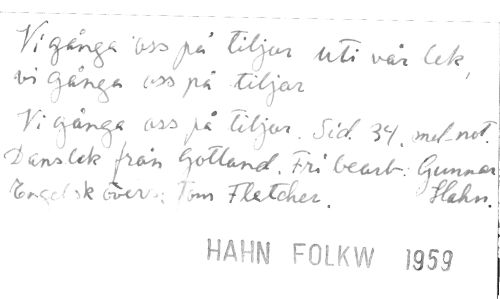 Vi gånga oss på tiljor uti vår lek,
vi gånga oss på tiljor
Vi gånga oss på tiljor. Sid. 34. mel-not.
Danslek från Gotland. Fri bearb: Gunnar
Engelsk övers: Tom Fletcher. Hahn.
HAHN FOLKW 1959